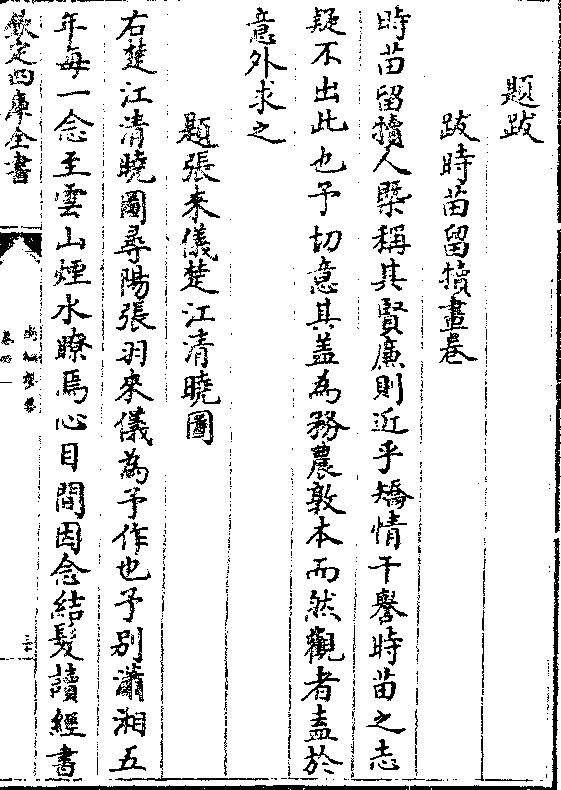 題跋
跋時苗留犢畫卷
時苗留犢人槩稱其賢廉則近乎矯情干譽時苗之志
疑不出此也予切意其盖為務農敦本而然觀者盍於
意外求之
題張來儀楚江清曉圖
右楚江清曉圖尋陽張羽來儀為予作也予别瀟湘五
年每一念至雲山煙水瞭焉心目間因念結髪讀經書
欽定四庫全書